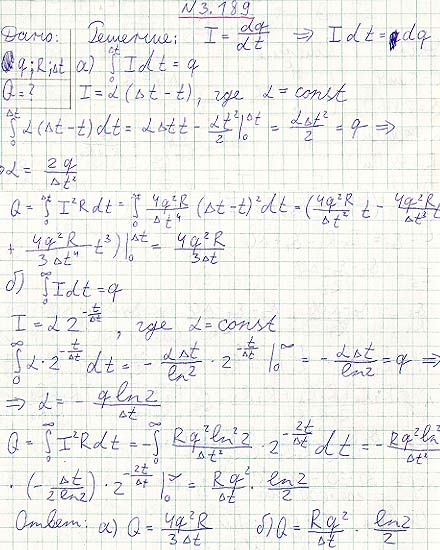 №3.189
Дано: Решение: I = dq/dt ⇒ I dt = dq
q; R; Δt а) ∫₀^Δt I dt = q
Q = ? I = α(Δt − t), где α = const
∫₀^Δt α(Δt − t)dt = αΔt t − αt²/2 |₀^Δt = αΔt²/2 = q ⇒
⇒ α = 2q/Δt²
Q = ∫₀^Δt I²R dt = ∫₀^Δt 4q²R/Δt⁴ (Δt − t)² dt = (4q²R/Δt² t − 4q²R/Δt³ t
+ 4q²R/3Δt⁴ t³)|₀^Δt = 4q²R/3Δt
б) ∫₀^∞ I dt = q
I = α 2^(−t/Δt), где α = const
∫₀^∞ α·2^(−t/Δt) dt = − αΔt/ln2 · 2^(−t/Δt) |₀^∞ = − αΔt/ln2 = q ⇒
⇒ α = − q ln2/Δt
Q = ∫₀^∞ I²R dt = −∫₀^∞ Rq²ln²2/Δt² · 2^(−2t/Δt) dt = − Rq²ln²/Δt²
· (− Δt/2ln2) · 2^(−2t/Δt) |₀^∞ = Rq²/Δt · ln2/2
Ответ: а) Q = 4q²R/3Δt б) Q = Rq²/Δt · ln2/2